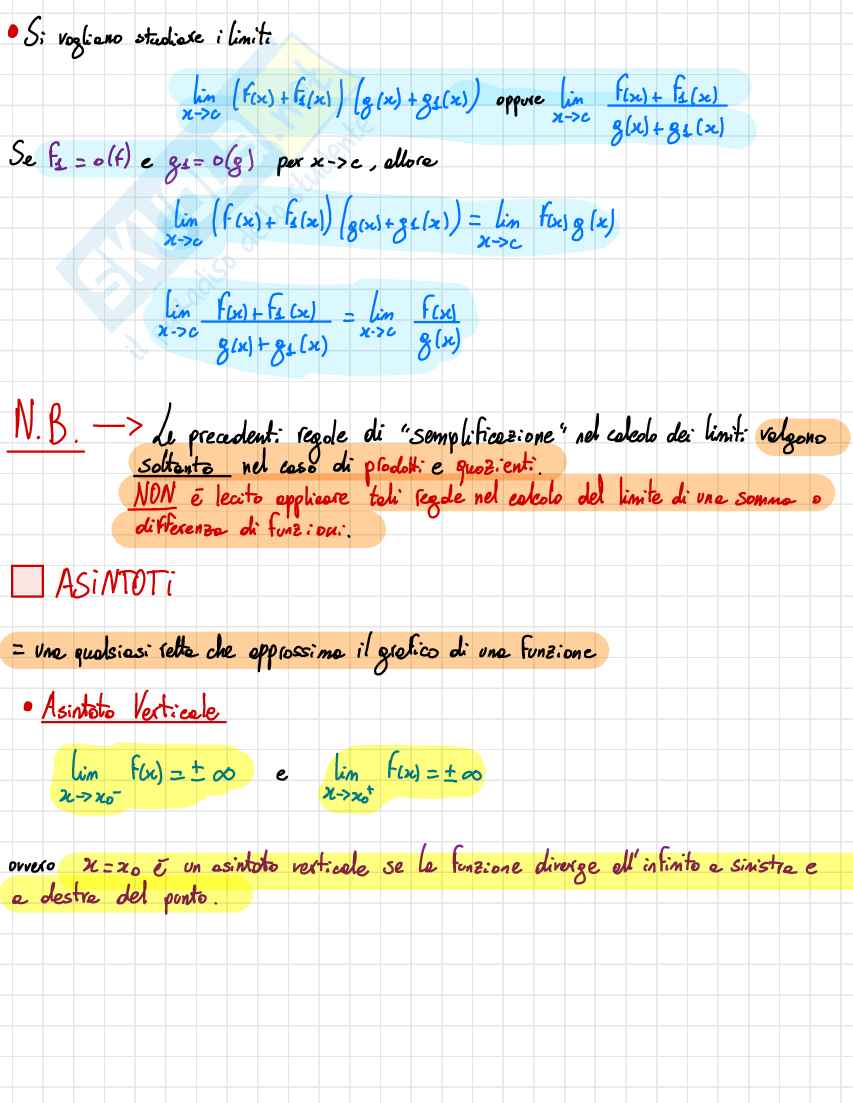 • Si vogliono studiare i limiti
lim x->c (f(x) + f1(x)) (g(x) + g1(x)) oppure lim x->c f(x) + f1(x) / g(x) + g1(x)
Se f1 = o(f) e g1 = o(g) per x->c, allora
lim x->c (f(x) + f1(x)) (g(x) + g1(x)) = lim x->c f(x) g(x)
lim x->c f(x) + f1(x) / g(x) + g1(x) = lim x->c f(x) / g(x)
N.B. -> Le precedenti regole di "semplificazione" nel calcolo dei limiti valgono
soltanto nel caso di prodotti e quozienti.
NON è lecito applicare tali regole nel calcolo del limite di una somma o
differenza di funzioni.
ASINTOTI
= una qualsiasi retta che approssima il grafico di una funzione
• Asintoto Verticale
lim x->x0⁻ f(x) = ± ∞ e lim x->x0⁺ f(x) = ± ∞
ovvero x = x0 è un asintoto verticale se la funzione diverge all'infinito a sinistra e
a destra del punto.